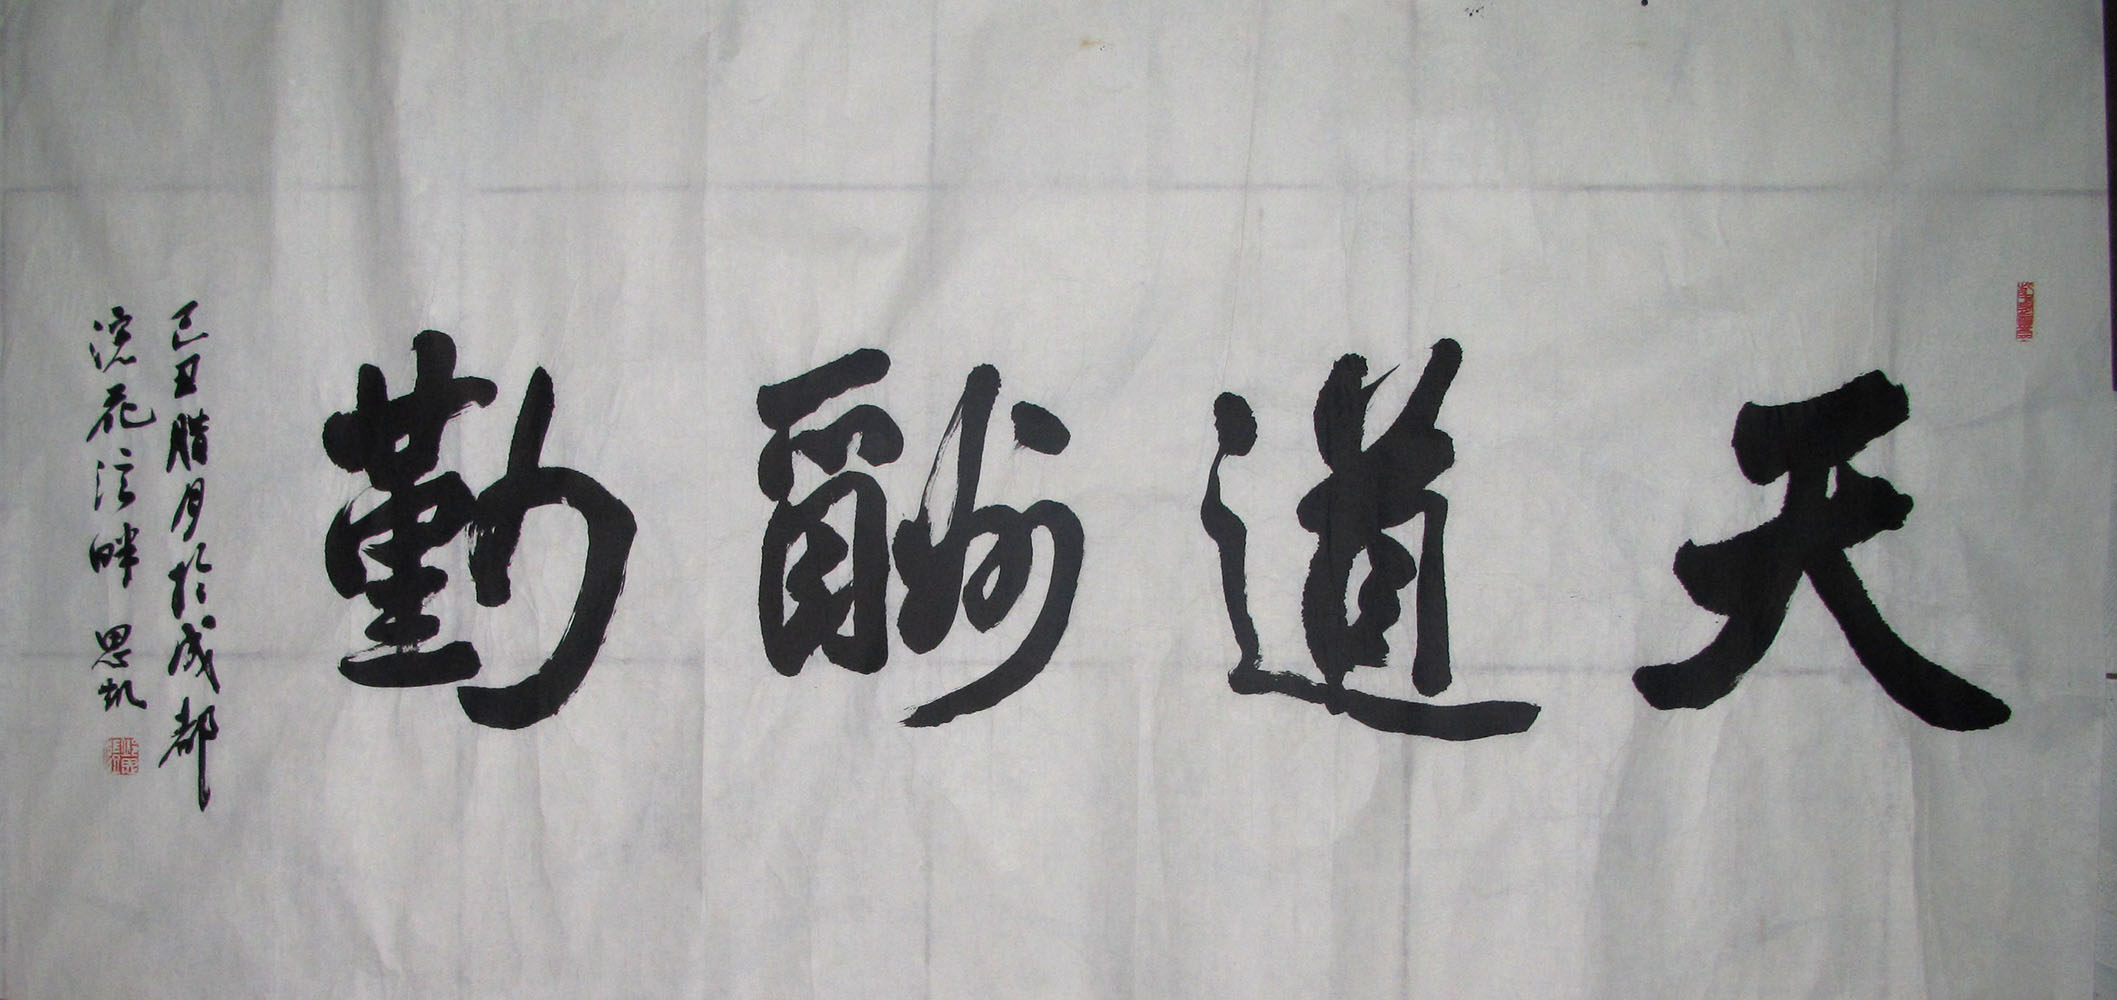 天道酬勤
己丑腊月於成都
浣花溪畔 思凯